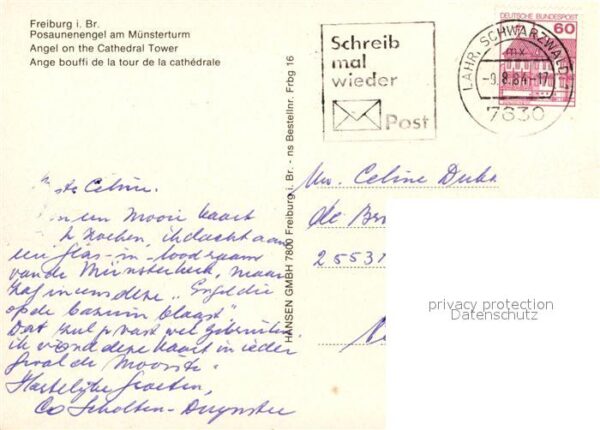 Freiburg i. Br.
Posaunenengel am Münsterturm
Angel on the Cathedral Tower
Ange bouffi de la tour de la cathédrale
Schreib
mal
wieder
Post
DEUTSCHE BUNDESPOST
60
LAHR, SCHWARZWALD
mx
-9.8.84-17
7630
HANSEN GMBH 7800 Freiburg i. Br. - ns Bestellnr. Frbg 16
Celine.
een Mooie kaart
zoeken, ik dacht aan
een glas-in-loodraam
van de Münsterkerk, maar
zag ineens deze "Engel die
op de bazuin blaast"
Dat zul je vast wel gebruiken
ik vond deze kaart in ieder
geval de Mooiste.
Hartelijke Groeten,
Co Scholten-
Mw. Celine
de
25531
privacy protection
Datenschutz